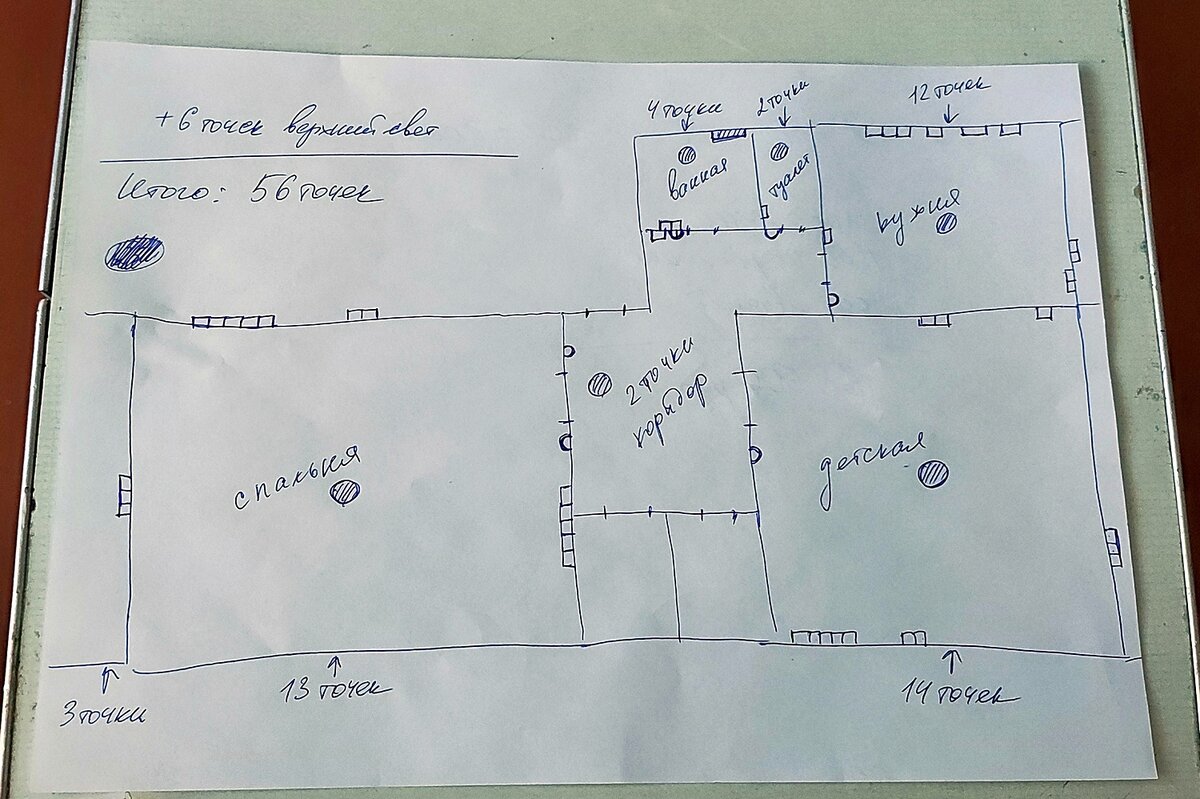 +6 точек верхний свет
Итого: 56 точек
4 точки
2 точки
12 точек
ванная
туалет
кухня
2 точки
коридор
спальня
детская
3 точки
13 точек
14 точек